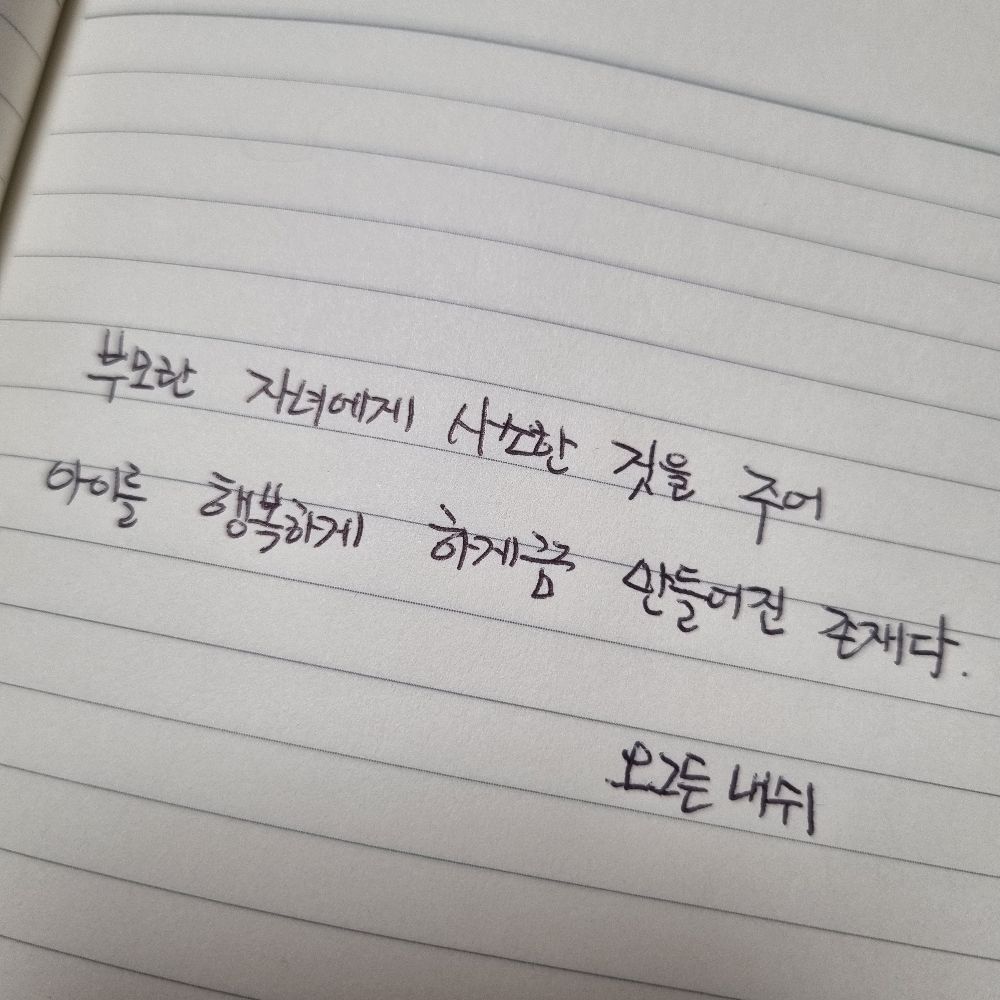 부모란 자녀에게 사소한 것을 주어
아이를 행복하게 하게끔 만들어진 존재다.
오그든 내쉬